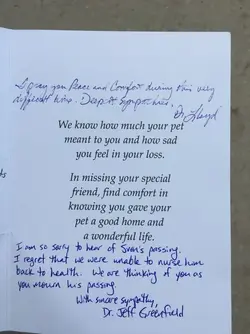 I pray you Peace and Comfort during this very
difficult time. Deepest Sympathies,
Dr. Lloyd
We know how much your pet
meant to you and how sad
you feel in your loss.
In missing your special
friend, find comfort in
knowing you gave your
pet a good home and
a wonderful life.
I am so sorry to hear of passing.
I regret that we were unable to nurse him
back to health. We are thinking of you as
you mourn his passing.
With sincere sympathy,
Dr. Jeff Greenfield